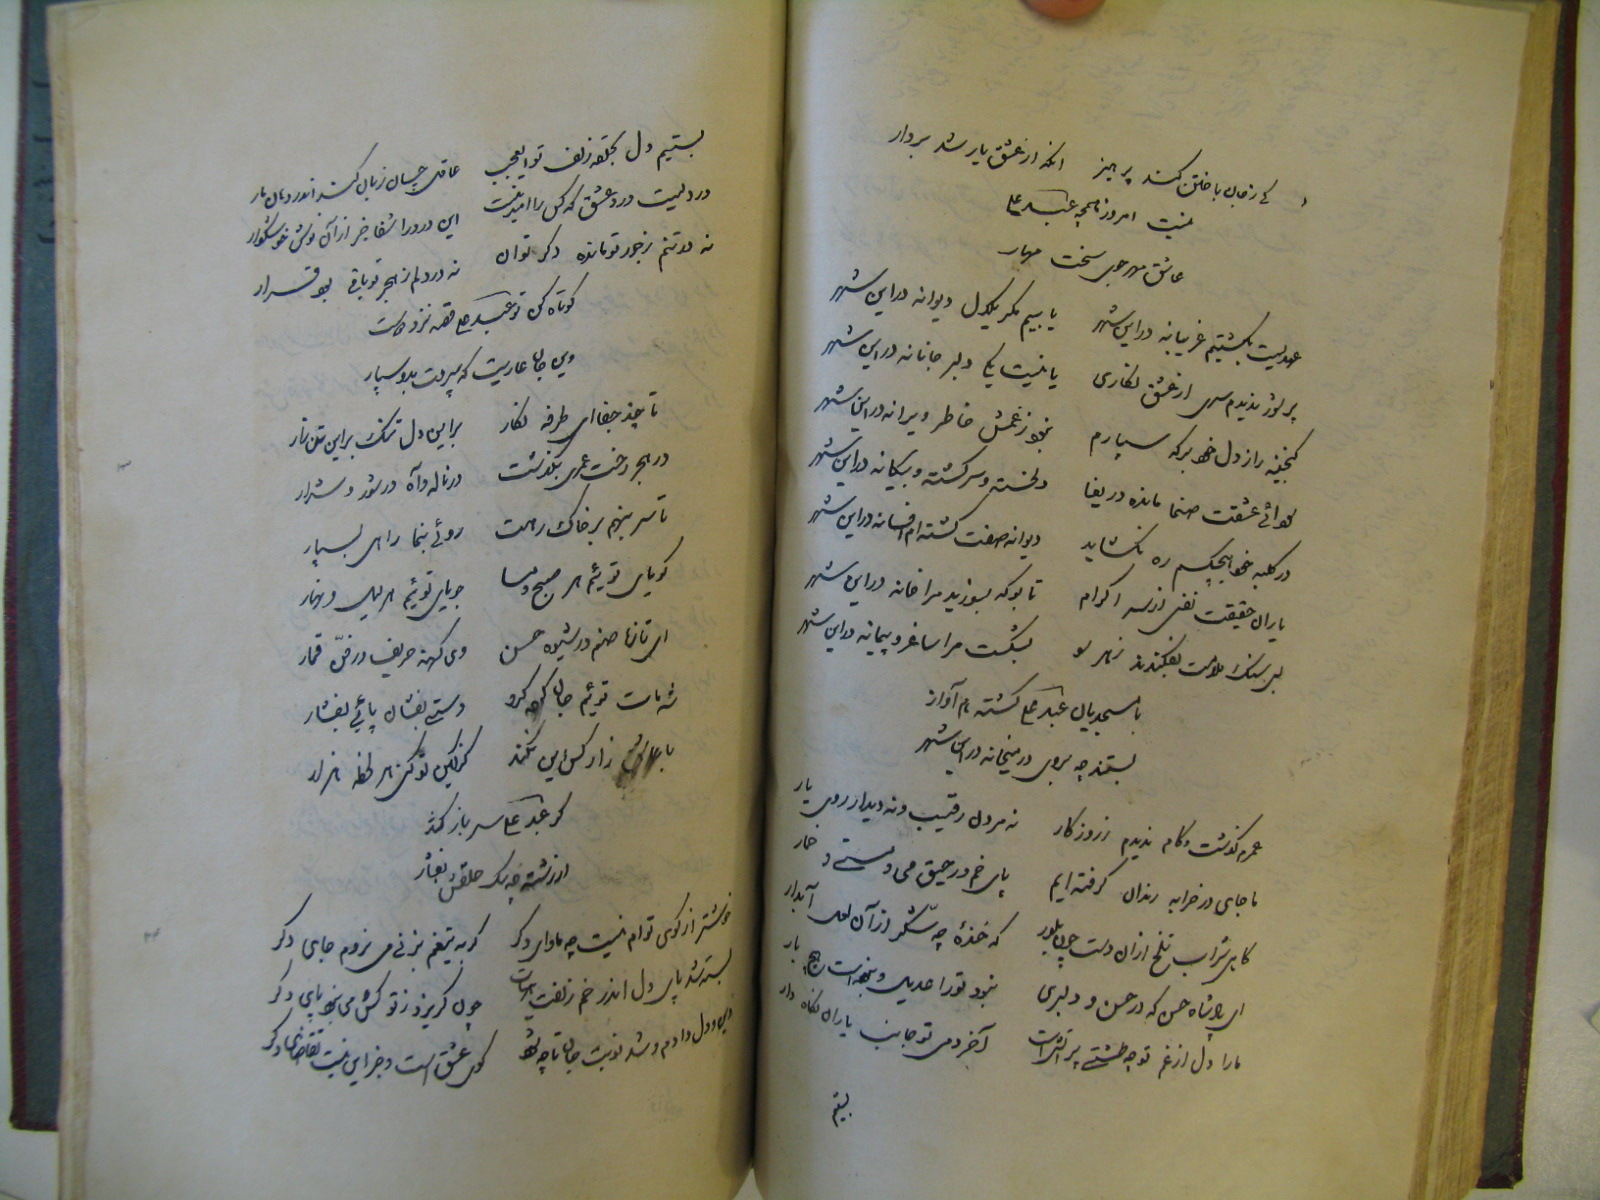 کی زجان باختن کند پرهیز    آنکه از عشق یار شد بردار
نیست امروز همچه عبدعلی
عاشق مهر جوی سخت مهار
عمریست بگشتیم غریبانه در این شهر    یابیم مگر یکدل دیوانه در این شهر
پرشور ندیدم سری از عشق نگاری    یا نیست یکی دلبر جانانه در این شهر
گنجینه راز دل خود بر که سپارم    نبود ز غمش خاطر ویرانه در این شهر
عشقت صنما مانده دریغا    دلخسته و سرگشته و بیگانه در این شهر
در کلبه خود هیچکسم ره نگشاید    دیوانه صفت گشته ام افسانه در این شهر
یاران حقیقت نفسی از سر اکرام    تا بو که بسوزید مرا خانه در این شهر
بس سنگ ملامت بفکندند ز هر سو    بشکست مرا ساغر و پیمانه در این شهر
تا مسجدیان عبدعلی گشته هم آواز
بستند چه بروی در میخانه در این شهر
عمرم گذشت و کام ندیدم ز روزگار    نه مردن رقیب و نه دیدار روی یار
ما جای در خرابه رندان گرفته ایم    پای خم و رحیق می و مستی و خمار
گاهی شراب تلخ از آن دست چون بلور    گه خنده چه شکر از آن لعل آبدار
ای پادشاه حسن که در حسن و دلبری    نبود تو را عدیل و نبوده است هیچ بار
ما را دل از غم تو چه طشتی پر آتش است    آخر دمی تو جانب یاران نگاه دار
بستیم
بستیم دل بحلقه زلف تو ایعجب    عاقل چسان زبان کند اندر دهان مار
دردیست درد عشق که کس را امید نیست    این درد را شفا جز از آن نوش خوشگوار
نه در تنم ز جور تو مانده دگر توان    نه در دلم ز هجر تو باقی بود قرار
کوتاه کن تو عبدعلی قصه نزد دوست
وین جان عاریت که سپردت بدو سپار
تا چند جفا ای طرفه نگار    بر این دل تنگ بر این تن زار
در هجر رخت عمری بگذشت    در ناله و آه در شور و شرار
تا سر بنهم بر خاک رهت    روئی بنما راهی بسپار
گویای توئیم هر صبح و مسا    جویای توئیم هر لیل و نهار
ای تازه صنم در شیوه حسن    وی کهنه حریف در فن قمار
شه مات توئیم جان کرده گرو    دستی بفشان پائی بفشار
با عاشق زار کس این نکند    کز کین تو کنی هر لحظه هزار
گر عبدعلی سر باز کند
از رشته چه سگ حلقش بفشار
خوشتر از کوی توام نیست چه ماوای دگر    گر به تیغم بزنی می نروم جای دگر
بسته شد پای دل اندر خم زلفت    چون گریزد ز تو کش می نبود پای دگر
دین و دل دادم و شد نوبت جان تا چه شود    کوی عشق است و جز این نیست تقاضای دگر